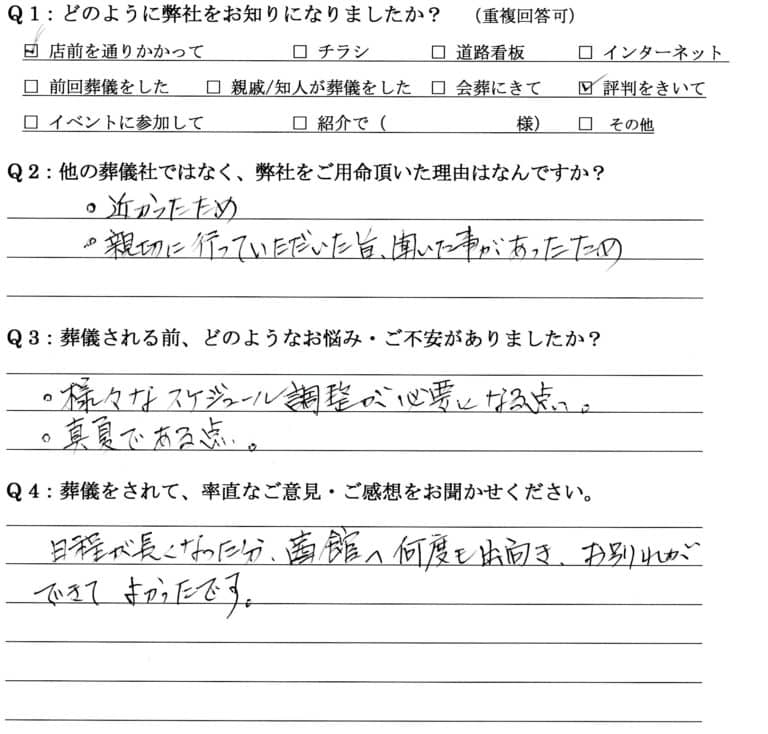 Q1：どのように弊社をお知りになりましたか？ （重複回答可）
☑ 店前を通りかかって □ チラシ □ 道路看板 □ インターネット
□ 前回葬儀をした □ 親戚/知人が葬儀をした □ 会葬にきて ☑ 評判をきいて
□ イベントに参加して □ 紹介で（ 様） □ その他
Q2：他の葬儀社ではなく、弊社をご用命頂いた理由はなんですか？
◦ 近かったため
◦ 親切に行っていただいた旨、聞いた事があったため
Q3：葬儀される前、どのようなお悩み・ご不安がありましたか？
◦ 様々なスケジュール調整が必要になる点。
◦ 真夏である点。
Q4：葬儀をされて、率直なご意見・ご感想をお聞かせください。
日程が長くなった分、貴館へ何度も出向き、お別れが
できてよかったです。